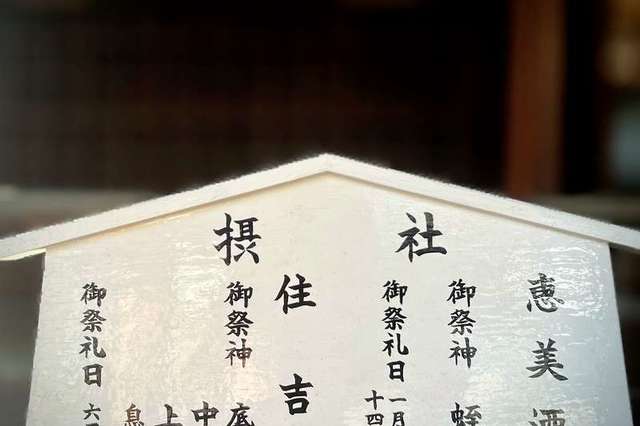 摂社
恵美酒
御祭神 蛭
御祭礼日 一月
十四
住吉
御祭神 底
中
上
御祭礼日 六